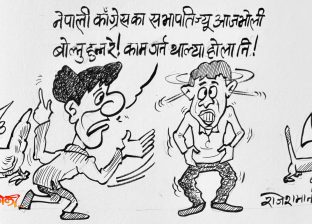 नेपाली काँग्रेसका सभापतिज्यू आजभोली
बोल्नुहुन्न रे! काम गर्न थाल्या होला नि!